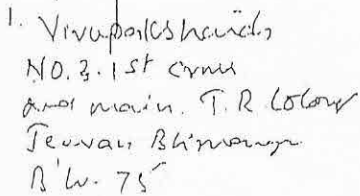 1. Virupakshaiah,
NO. 3. 1st cross
2nd main. T.R. Colony
Jeevan Bhimanagar
B'lu. 75